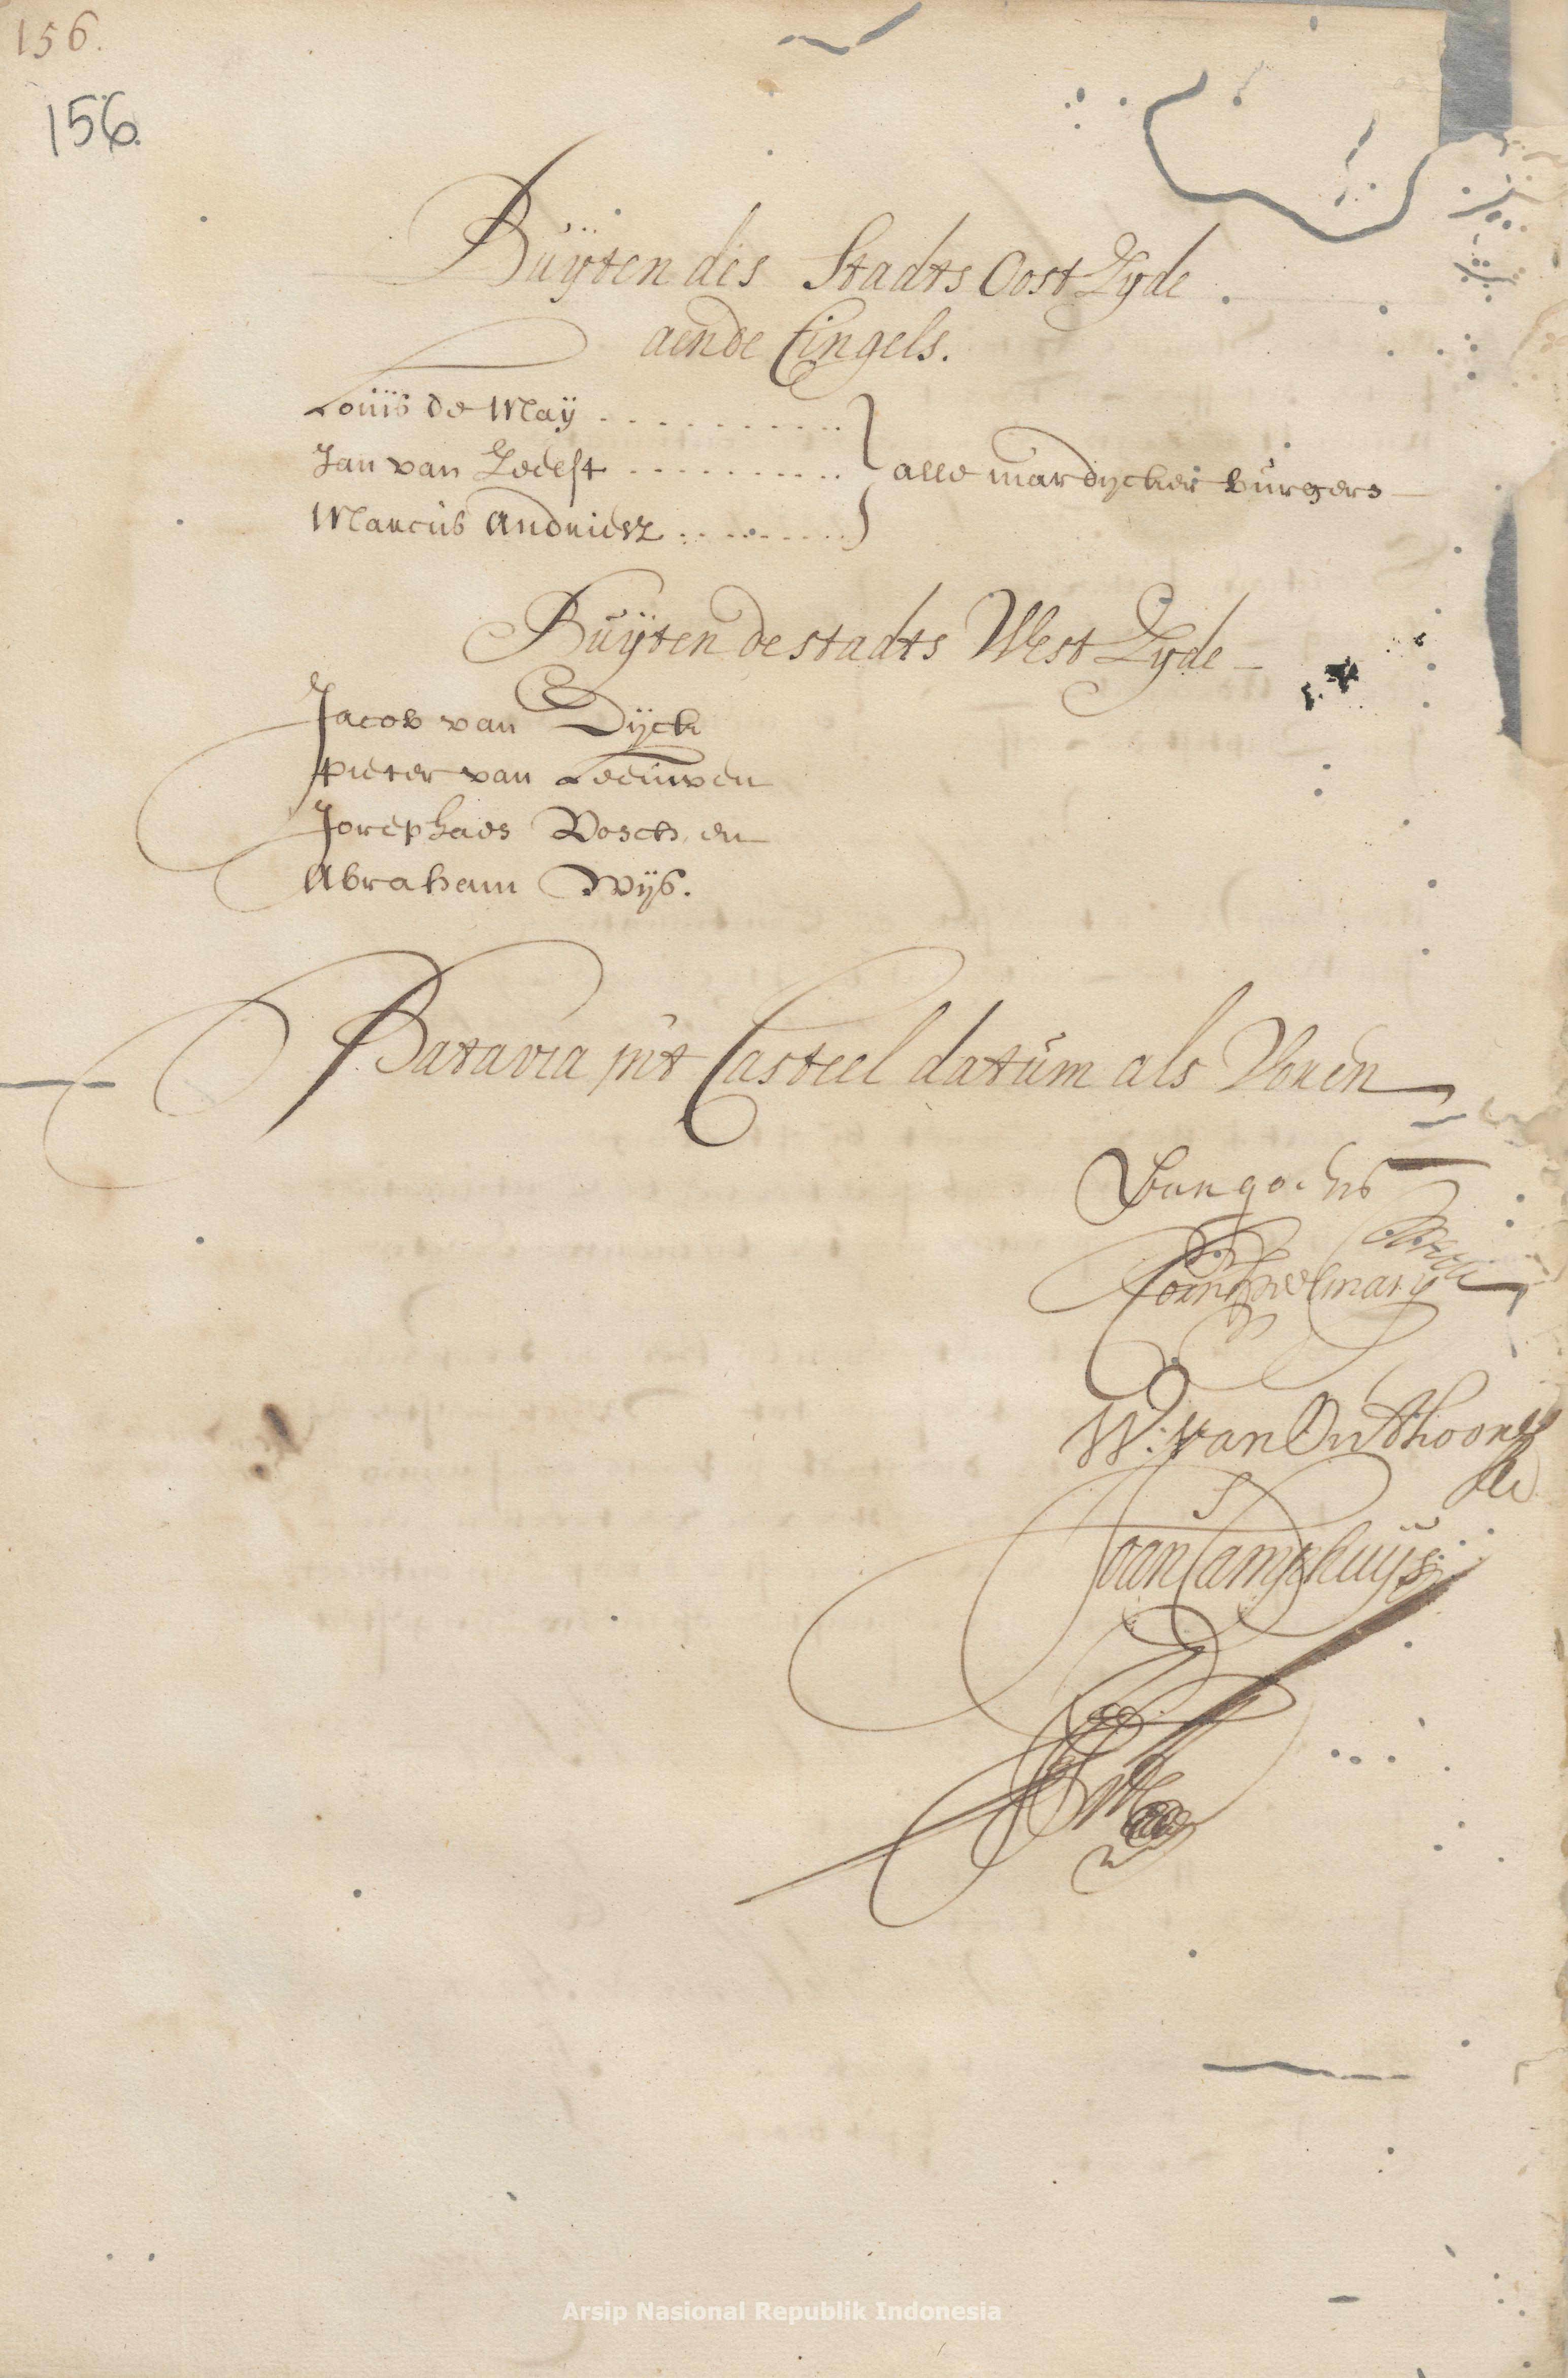 156.
156.
Buÿten des Stadts Oost Zyde
aende Cingels.
Louis de Maÿ
Jan van Zeelst
Marcus Andriesz
alle mardycker burgers
Buÿten de stadts West Zyde
Jacob van Dÿck
Pieter van Leeuwen
Josephaes Bosch, en
Abraham Wÿs.
Batavia int Casteel datum als Voren
Van goens
Corn: Speelman
W: van Outhoorn
Joan Camphuÿs
Arsip Nasional Republik Indonesia